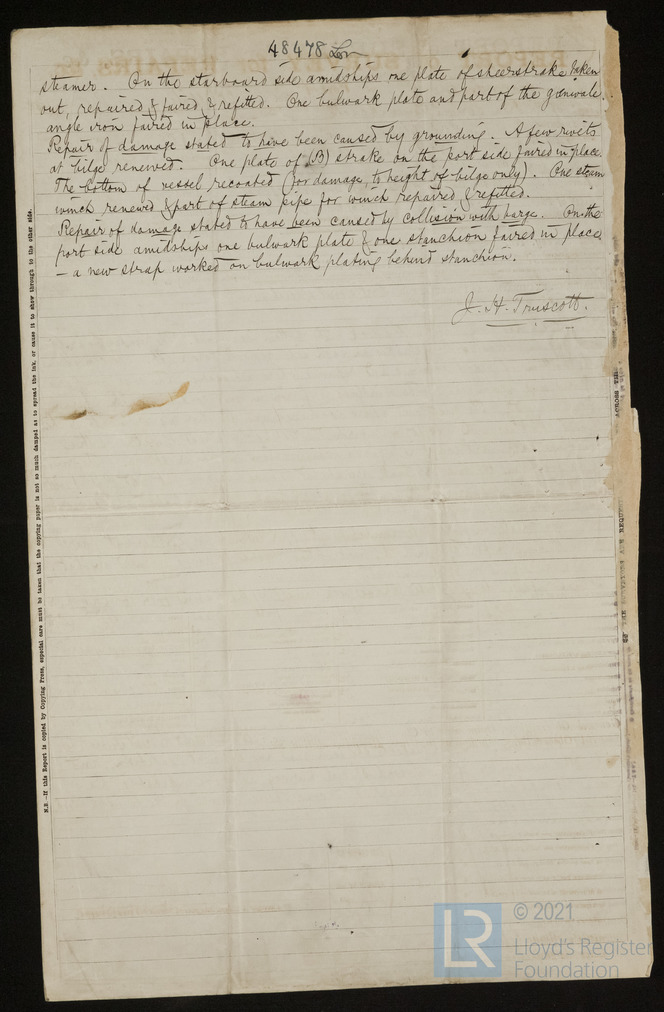 48478 Lon
steamer. On the starboard side amidships one plate of sheerstrake taken
out, repaired & faired & refitted. One bulwark plate and part of the gunwale
angle iron faired in place.
Repair of damage stated to have been caused by grounding. A few rivets
at bilge renewed. One plate of (B) strake on the port side faired in place.
The bottom of vessel recoated (for damage, to height of bilge only). One steam
winch renewed & part of steam pipe for winch repaired & refitted.
Repair of damage stated to have been caused by collision with barge. On the
port side amidships one bulwark plate & one stanchion faired in place
– a new strap worked on bulwark plating behind stanchion.
J. H. Truscott.
N.B.—If this Report is copied by Copying Press, especial care must be taken that the copying paper is not so much damped as to spread the ink, or cause it to show through to the other side.
ACROSS THE
LR
© 2021
Lloyd's Register
Foundation